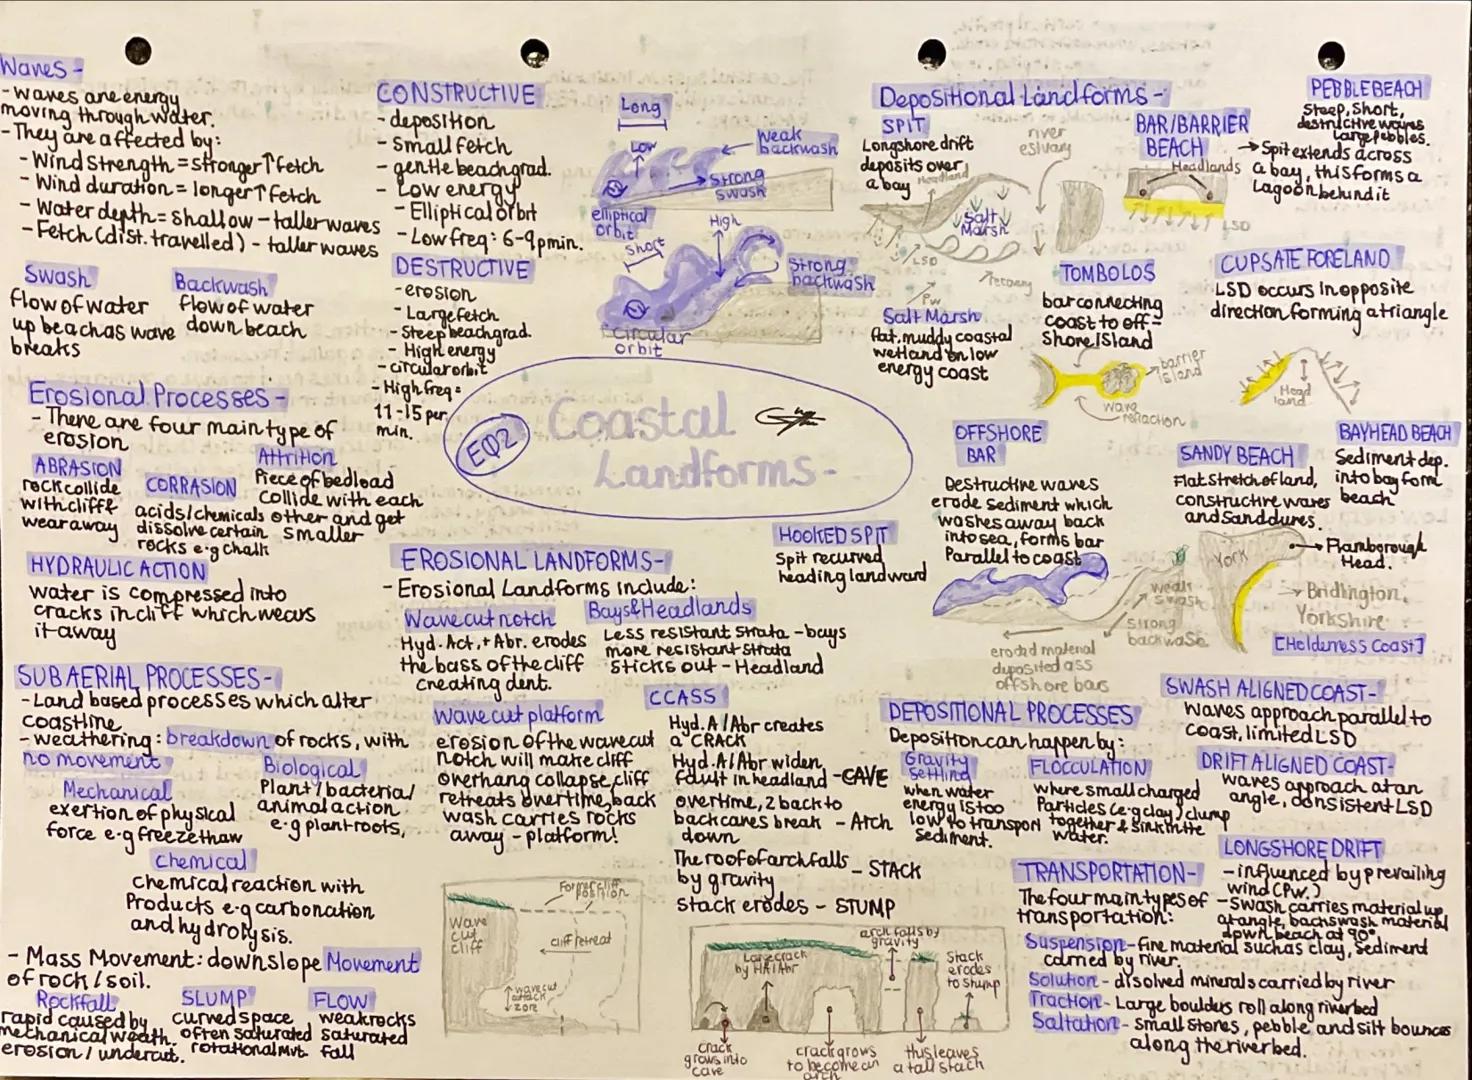 Waves -
- Waves are energy
moving through water.
- They are affected by:
- Wind Strength = stronger ↑ fetch
- Wind duration = longer ↑ fetch
- Water depth = shallow - taller waves
- Fetch (dist. travelled) - taller waves
Swash
flow of water
up beach as wave
breaks
Backwash
flow of water
down beach
CONSTRUCTIVE
- deposition
- Small fetch
- gentle beach grad.
- Low energy
- Elliptical orbit
- Low freq: 6-9 pmin.
DESTRUCTIVE
- erosion
- Large fetch
- Steep beach grad.
- High energy
- circular orbit
- High freq =
11-15 per
min.
Long
Low
weak
backwash
Strong
swash
elliptical
orbit
High
Short
Strong
backwash
Circular
orbit
EQ2
Coastal
Landforms-
Erosional Processes -
- There are four main type of
erosion
ABRASION
rock collide
with cliff &
wear away
CORRASION
acids/chemicals
dissolve certain
rocks e.g chalk
Attrition
Piece of bedload
collide with each
other and get
smaller
HYDRAULIC ACTION
water is compressed into
cracks in cliff which wears
it away
SUB AERIAL PROCESSES -
- Land based processes which alter
coastline
- weathering: breakdown of rocks, with
no movement
Mechanical
exertion of physical
force e.g freeze thaw
Biological
Plant/bacteria/
animal action
e.g plant roots,
Chemical
Chemical reaction with
Products e.g carbonation
and hydrolysis.
- Mass Movement: downslope Movement
of rock / soil.
Rockfall
rapid caused by
mechanical weath.
erosion / undercut.
SLUMP
curved space
often saturated
rotational mvt.
FLOW
weak rocks
saturated
fall
EROSIONAL LANDFORMS -
- Erosional Landforms include:
Wave cut notch
Hyd. Act, + Abr. erodes
the bass of the cliff
creating dent.
Bays & Headlands
Less resistant strata - bays
more resistant strata
sticks out - Headland
Wave cut platform
erosion of the wave cut
notch will make cliff
overhang collapse, cliff
retreats overtime, back
wash carries rocks
away - platform!
CCASS
Hyd. A / Abr creates
a CRACK
Hyd. A/Abr widen
fault in headland - CAVE
overtime, 2 back to
back caves break - Arch
down
The roof of arch falls - STACK
by gravity
Stack erodes - STUMP
Former cliff
position
Wave
cut
cliff
cliff retreat
wave cut
attack
zone
arch falls by
gravity
Large crack
by HA/Abr
Stack
erodes
to stump
Crack
grows into
cave
crack grows
to become an
arch
this leaves
a tall stach
HOOKED SPIT
Spit recurved
heading landward
Depositional Landforms -
SPIT
Longshore drift
deposits over
a bay
river
estuary
Headland
Salt
Marsh
LSD
recurving
Pw
Salt Marsh
flat, muddy coastal
wetland on low
energy coast
BAR/BARRIER
BEACH
→ Spit extends across
a bay, this forms a
Lagoon behind it
Headlands
LSD
PEBBLE BEACH
Steep, Short,
destrictive waves
Large pebbles.
TOMBOLOS
bar connecting
coast to off-
Shore Island
barrier
island
wave
refraction
CUPSATE FORELAND
LSD occurs in opposite
direction forming a triangle
Head
land
OFFSHORE
BAR
Destructive waves
erode sediment which
washes away back
into sea, forms bar
Parallel to coast
weak
swash
Strong
backwase
eroded material
deposited ass
offshore bars
SANDY BEACH
Flat stretch of land,
constructive waves
and sand dunes.
BAYHEAD BEACH
Sediment dep.
into bay form
beach
York
→ Flamborough
Head.
→ Bridlington,
Yorkshire
[Holderness Coast]
DEPOSITIONAL PROCESSES
Deposition can happen by:
Gravity
settling
when water
energy is too
low to transport
sediment.
FLOCCULATION
where small charged
Particles (e.g clay) clump
together & sink in the
water.
SWASH ALIGNED COAST -
Waves approach parallel to
coast, limited LSD
DRIFT ALIGNED COAST -
waves approach at an
angle, consistent LSD
LONGSHORE DRIFT
- influenced by prevailing
wind (Pw.)
- Swash carries material up
at angle, backswash material
down beach at 90°
TRANSPORTATION -
The four main types of
transportation:
Suspension - fine material such as clay, sediment
carried by river.
Solution - disolved minerals carried by river
Traction - Large boulders roll along riverbed
Saltation - small stones, pebble and silt bounces
along the riverbed.